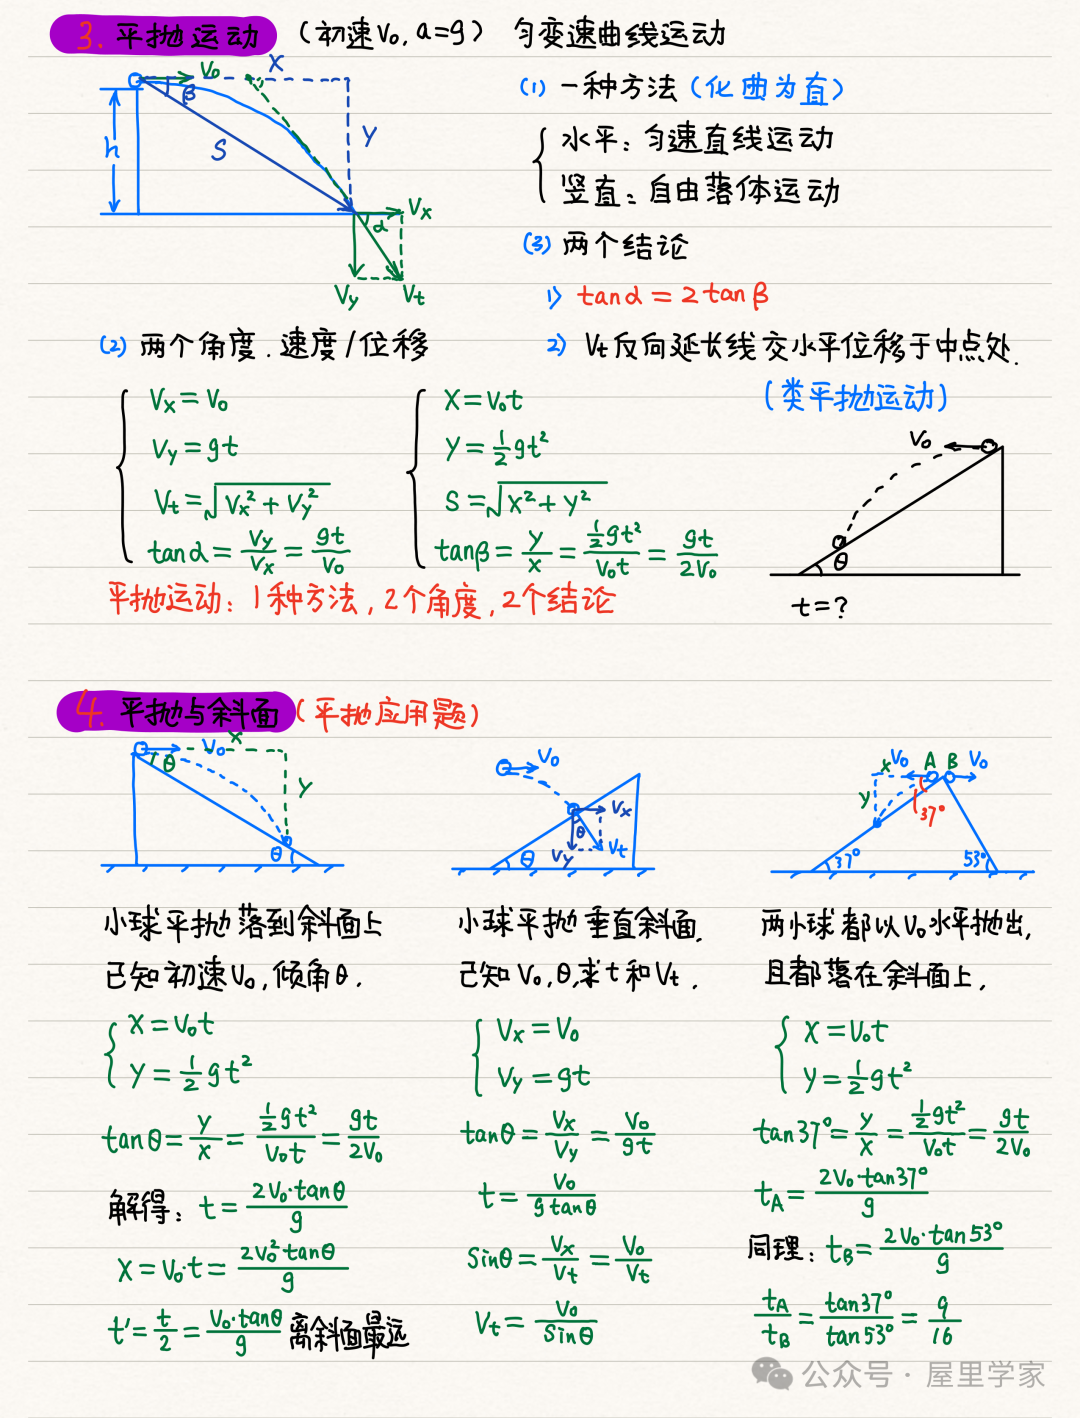 3. 平抛运动 (初速V₀, a=g) 匀变速曲线运动
V₀ X
β
h S Y
Vx
α
Vy Vt
(1) 一种方法 (化曲为直)
水平: 匀速直线运动
竖直: 自由落体运动
(3) 两个结论
1) tanα = 2tanβ
2) Vt反向延长线交水平位移于中点处.
(2) 两个角度. 速度/位移
Vx = V₀
Vy = gt
Vt = √(Vx² + Vy²)
tanα = Vy/Vx = gt/V₀
X = V₀t
Y = ½gt²
S = √(X² + Y²)
tanβ = y/x = ½gt²/V₀t = gt/2V₀
(类平抛运动)
V₀
θ
t = ?
平抛运动: 1种方法, 2个角度, 2个结论
4. 平抛与斜面 (平抛应用题)
V₀ x
θ
Y
θ
V₀
Vx
θ
Vy Vt
θ
x V₀ A B V₀
y
37°
37° 53°
小球平抛落到斜面上
已知初速V₀, 倾角θ.
X = V₀t
Y = ½gt²
tanθ = y/x = ½gt²/V₀t = gt/2V₀
解得: t = 2V₀·tanθ/g
X = V₀·t = 2V₀²·tanθ/g
t' = t/2 = V₀·tanθ/g 离斜面最远
小球平抛垂直斜面.
已知V₀, θ, 求t和Vt.
Vx = V₀
Vy = gt
tanθ = Vx/Vy = V₀/gt
t = V₀/g tanθ
Sinθ = Vx/Vt = V₀/Vt
Vt = V₀/Sinθ
两小球都以V₀水平抛出,
且都落在斜面上.
X = V₀t
y = ½gt²
tan37° = y/x = ½gt²/V₀t = gt/2V₀
tA = 2V₀·tan37°/g
同理: tB = 2V₀·tan53°/g
tA/tB = tan37°/tan53° = 9/16
公众号 · 屋里学家